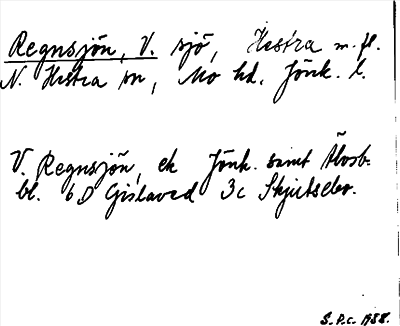 Regnsjön, V. sjö, Hestra m. fl.
N. Hestra sn, Mo hd, Jönk. l.
V. Regnsjön, ek Jönk. samt Älvsb.
bl. 6D Gislaved 3c Skjutsebo.
S.P.c. 1988.